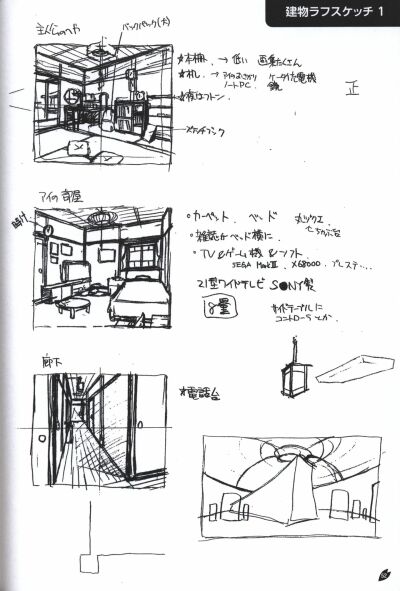 建物ラフスケッチ 1
主人公のへや
バックパック(大)
★本棚 → 低い 画集たくさん
★机 → アイのまじかり ケータイ充電機
ノートPC. 鏡
★夜はフトン
正
スケッチブック
アイの部屋
時計
○カーペット. ベッド 丸ツクエ.
○雑誌がベッド横に. ちゃぶ台
○TV &ゲーム機 &ソフト.
SEGA MarkⅢ. X68000. プレステ…
21型ワイドテレビ S●NY製
8畳
サイドテーブルに
コントローラとか.
廊下
★電話台